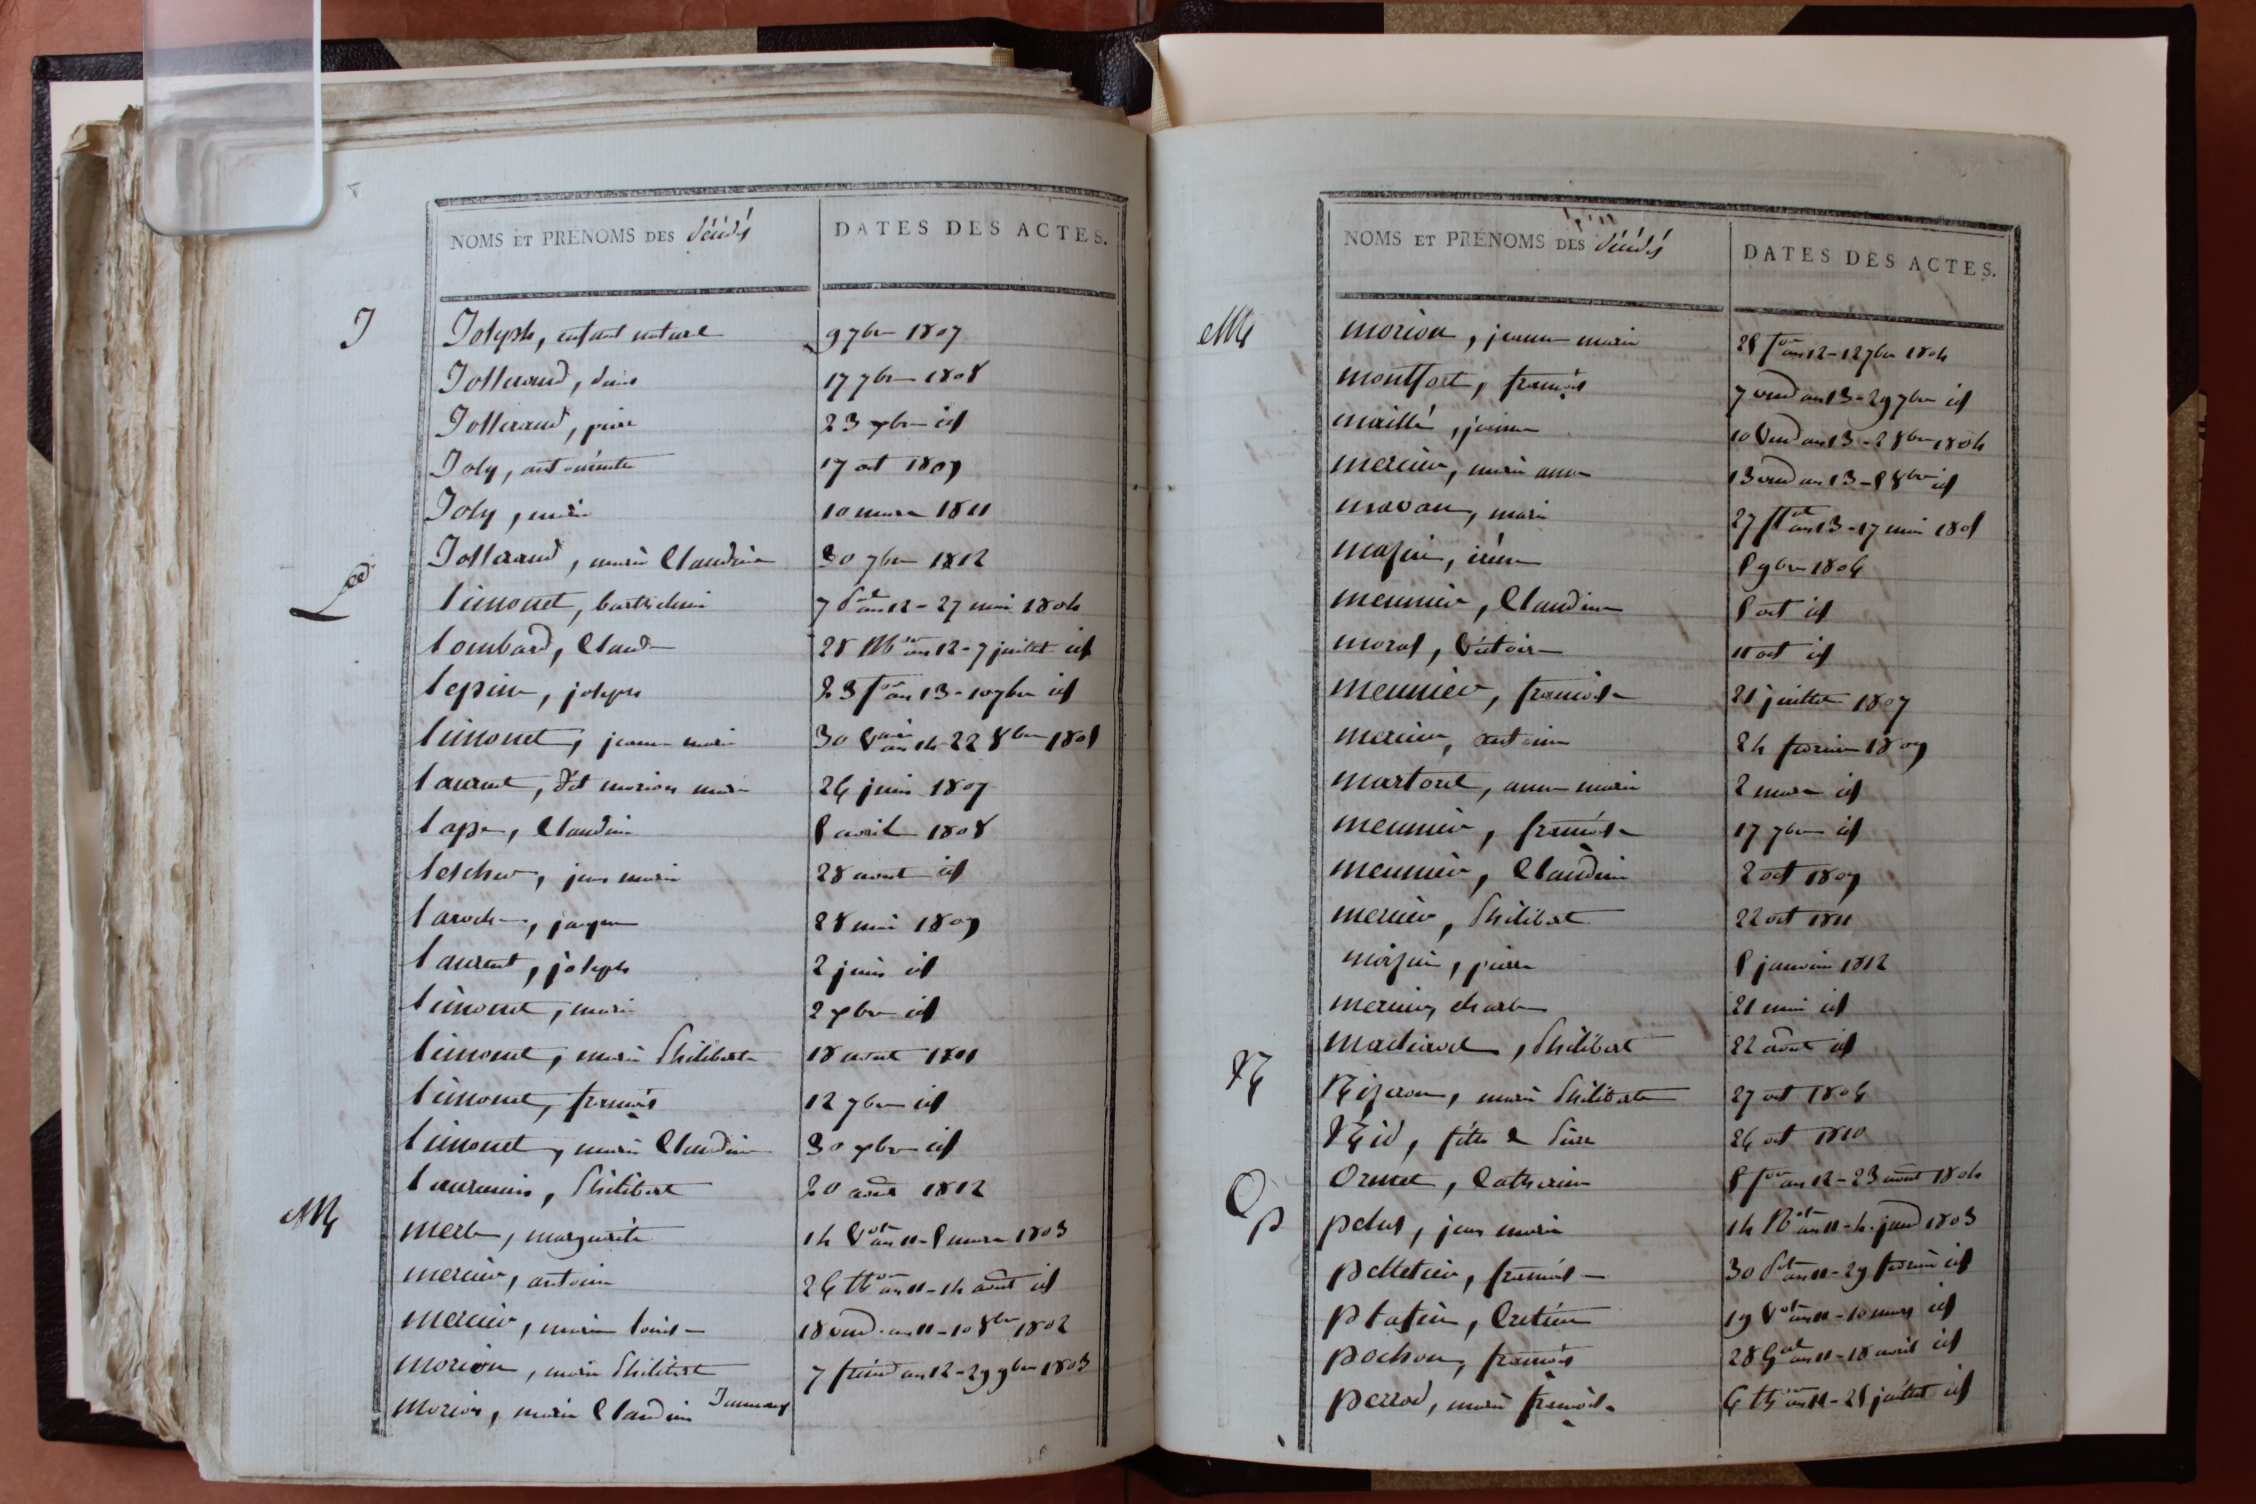 NOMS ET PRÉNOMS DES décédés
DATES DES ACTES.
J
Joseph, enfant naturel 9 7bre 1807
Josserand, denis 17 7bre 1808
Josserand, pierre 23 xbre id
Joly, antoinette 17 oct 1809
Joly, marie 10 mars 1811
Josserand, marie Claudine 30 7bre 1812
L
limonet, barthelemi 7 an 12 - 27 mai 1804
lombard, Claude 28 Mor an 12 - 7 juillet id
lepine, joseph 23 for an 13 - 10 7bre id
limonet, jeanne marie 30 an 14 22 8bre 1805
laurent, dit morion marie 26 juin 1807
lape, Claudine 8 avril 1808
lescher, jean marie 28 aout id
laroche, jacques 28 mai 1809
laurent, joseph 2 juin id
limonet, marie 2 xbre id
limonet, marie Philiberte 18 aout 1811
limonet, françois 12 7bre id
limonet, marie Claudine 30 xbre id
Philibert 20 août 1812
M
merle, marguerite 14 Vse an 11 - 8 mars 1803
mercier, antoine 26 thor an 11 - 14 août id
mercier, marie louise 18 vend. an 11 - 10 8bre 1802
morion, marie Philiberte 7 frim an 12 - 29 9bre 1803
Morion, marie Claudine
NOMS ET PRÉNOMS DES décédés
DATES DES ACTES.
M
morion, jeanne marie 25 for an 12 - 12 7bre 1804
montfort, françois 7 vend an 13 - 29 7bre id
maillé, jeanne 10 Vend an 13 - 2 8bre 1804
mercier, marie anne 13 vend an 13 - 5 8bre id
marie 27 an 13 - 17 mai 1805
mazuir, irénée 8 9bre 1806
meunier, Claudine 8 oct id
moral, Victoire 11 oct id
meunier, françoise 21 juillet 1807
mercier, antoine 24 fevrier 1809
martoret, anne marie 2 mars id
meunier, françoise 17 7bre id
meunier, Claudine 2 oct 1809
mercier, Philibert 22 oct 1811
pierre 8 janvier 1812
mercier, charles 21 mai id
Philibert 22 aout id
N
Nizeron, marie Philiberte 27 oct 1806
Nid, fille de Pierre 26 oct 1810
O
Ormet, Catherine 5 for an 12 - 23 aout 1804
p
pelus, jean marie 14 Nose an 11 - 4 janv 1803
pelletier, françoise 30 Pse an 11 - 29 fevrier id
platin, Cretien 19 Vse an 11 - 10 mars id
pochon, françois 28 Gal an 11 - 18 avril id
perrod, marie françoise 6 thor an 11 - 25 juillet id